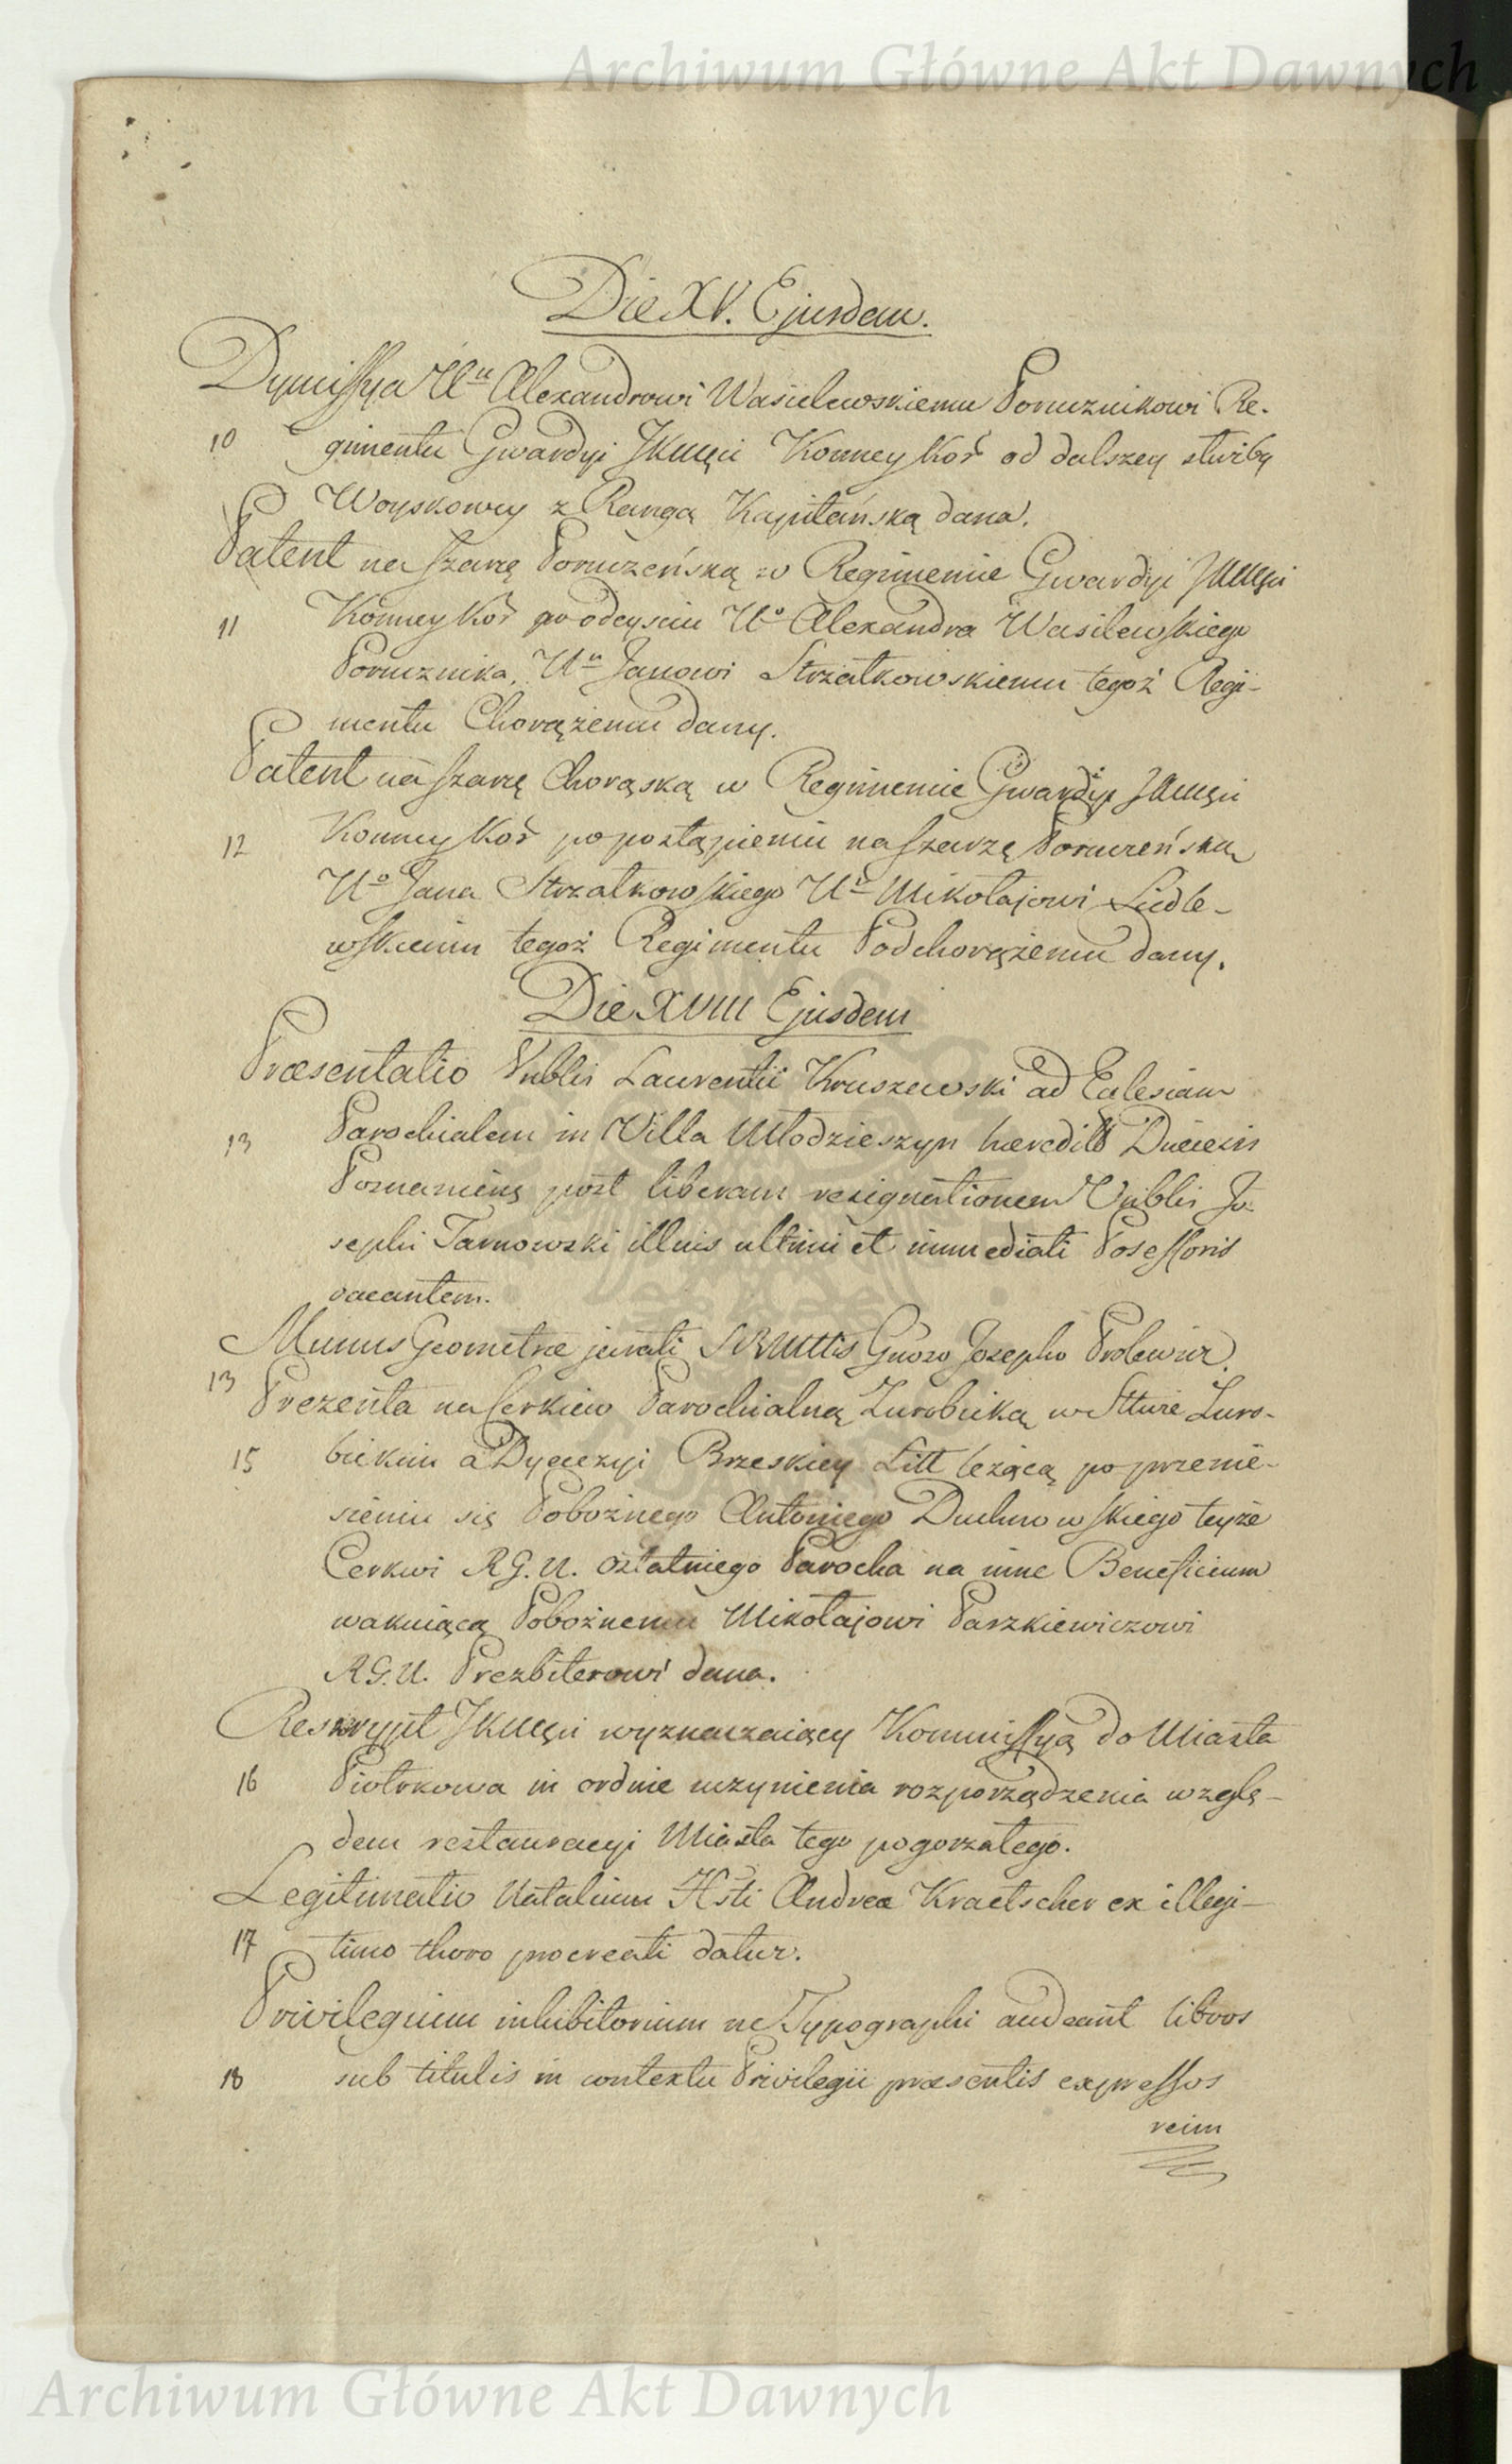 Archiwum Główne Akt Dawnych
Die XV. Ejusdem.
Dymissya Uu Alexandrowi Wasilewskiemu Porucznikowi Re-
10 gimentu Gwardyi JKMści Konney Kor od dalszey służby
Woyskowey z Rangą Kapitańską dana.
Patent na szarżę Poruczeńską w Regimencie Gwardyi JKMści
11 Konney Kor po odeyściu Uo Alexandra Wasilewskiego
Porucznika, Uu Janowi Strzałkowskiemu tegoż Regi-
mentu Chorążemu dany.
Patent na szarżę Chorąską w Regimencie Gwardyi JKMści
12 Konney Kor po postąpieniu na szarżę Poruczeńską
Uo Jana Strzałkowskiego Uu Mikołajowi Siedle-
wskiemu tegoż Regimentu Podchorążemu dany.
Die XVIII Ejusdem
Præsentatio Vnblis Laurentii Kruszewski ad Eclesiam
13 Parochialem in Villa Młodzieszyn hæredit Diæcesis
Posnaniens post liberam resignationem Vnblis Jo-
sephi Tarnowski illius ultimi et immediati Posessoris
vacantem.
Munus Geometræ jurati SRMttis Gnoso Josepho Prolewicz.
13 Prezenta na Cerkiew Parochialną Zurobicką w Sttwie Zuro-
15 bickim a Dyecezyi Brzeskiey Litt leżącą po przenie-
sieniu się Pobożnego Antoniego Duchnowskiego teyże
Cerkwi R.G.U. ostatniego Parocha na inne Beneficium
wakuiącą Pobożnemu Mikołajowi Paszkiewiczowi
R.G.U. Prezbiterowi dana.
Reskrypt JKMści wyznaczaiący Kommissyą do Miasta
16 Piotrkowa in ordine uczynienia rozporządzenia wzglę-
dem restauracyi Miasta tego pogorzałego.
Legitimatio Natalium Hsti Andreæ Kraetscher ex illegi-
17 timo thoro procreati datur.
Privilegium inhibitorium ne Typographi audeant libros
18 sub titulis in contextu Privilegii præsentis expressos
reim
Archiwum Główne Akt Dawnych